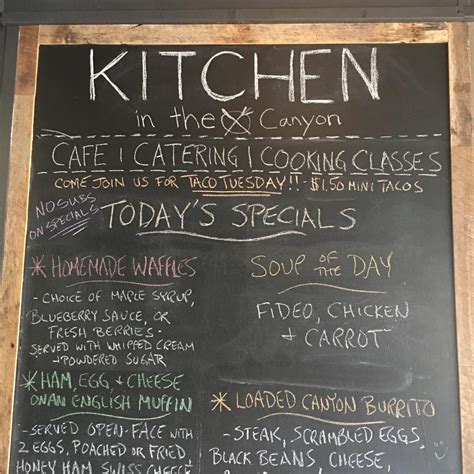 KITCHEN
in the Canyon
CAFE | CATERING | COOKING CLASSES
COME JOIN US FOR TACO TUESDAY!! - $1.50 MINI TACOS
NO SUBS
ON SPECIALS
TODAY'S SPECIALS
* HOMEMADE WAFFLES
- CHOICE OF MAPLE SYRUP,
BLUEBERRY SAUCE, OR
FRESH BERRIES -
SERVED WITH WHIPPED CREAM
+ POWDERED SUGAR
* HAM, EGG, + CHEESE
ON AN ENGLISH MUFFIN
- SERVED OPEN-FACE WITH
2 EGGS, POACHED OR FRIED,
HONEY HAM, SWISS CHEESE
SOUP OF THE DAY
FIDEO, CHICKEN
+ CARROT
* LOADED CANYON BURRITO
- STEAK, SCRAMBLED EGGS,
BLACK BEANS, CHEESE,